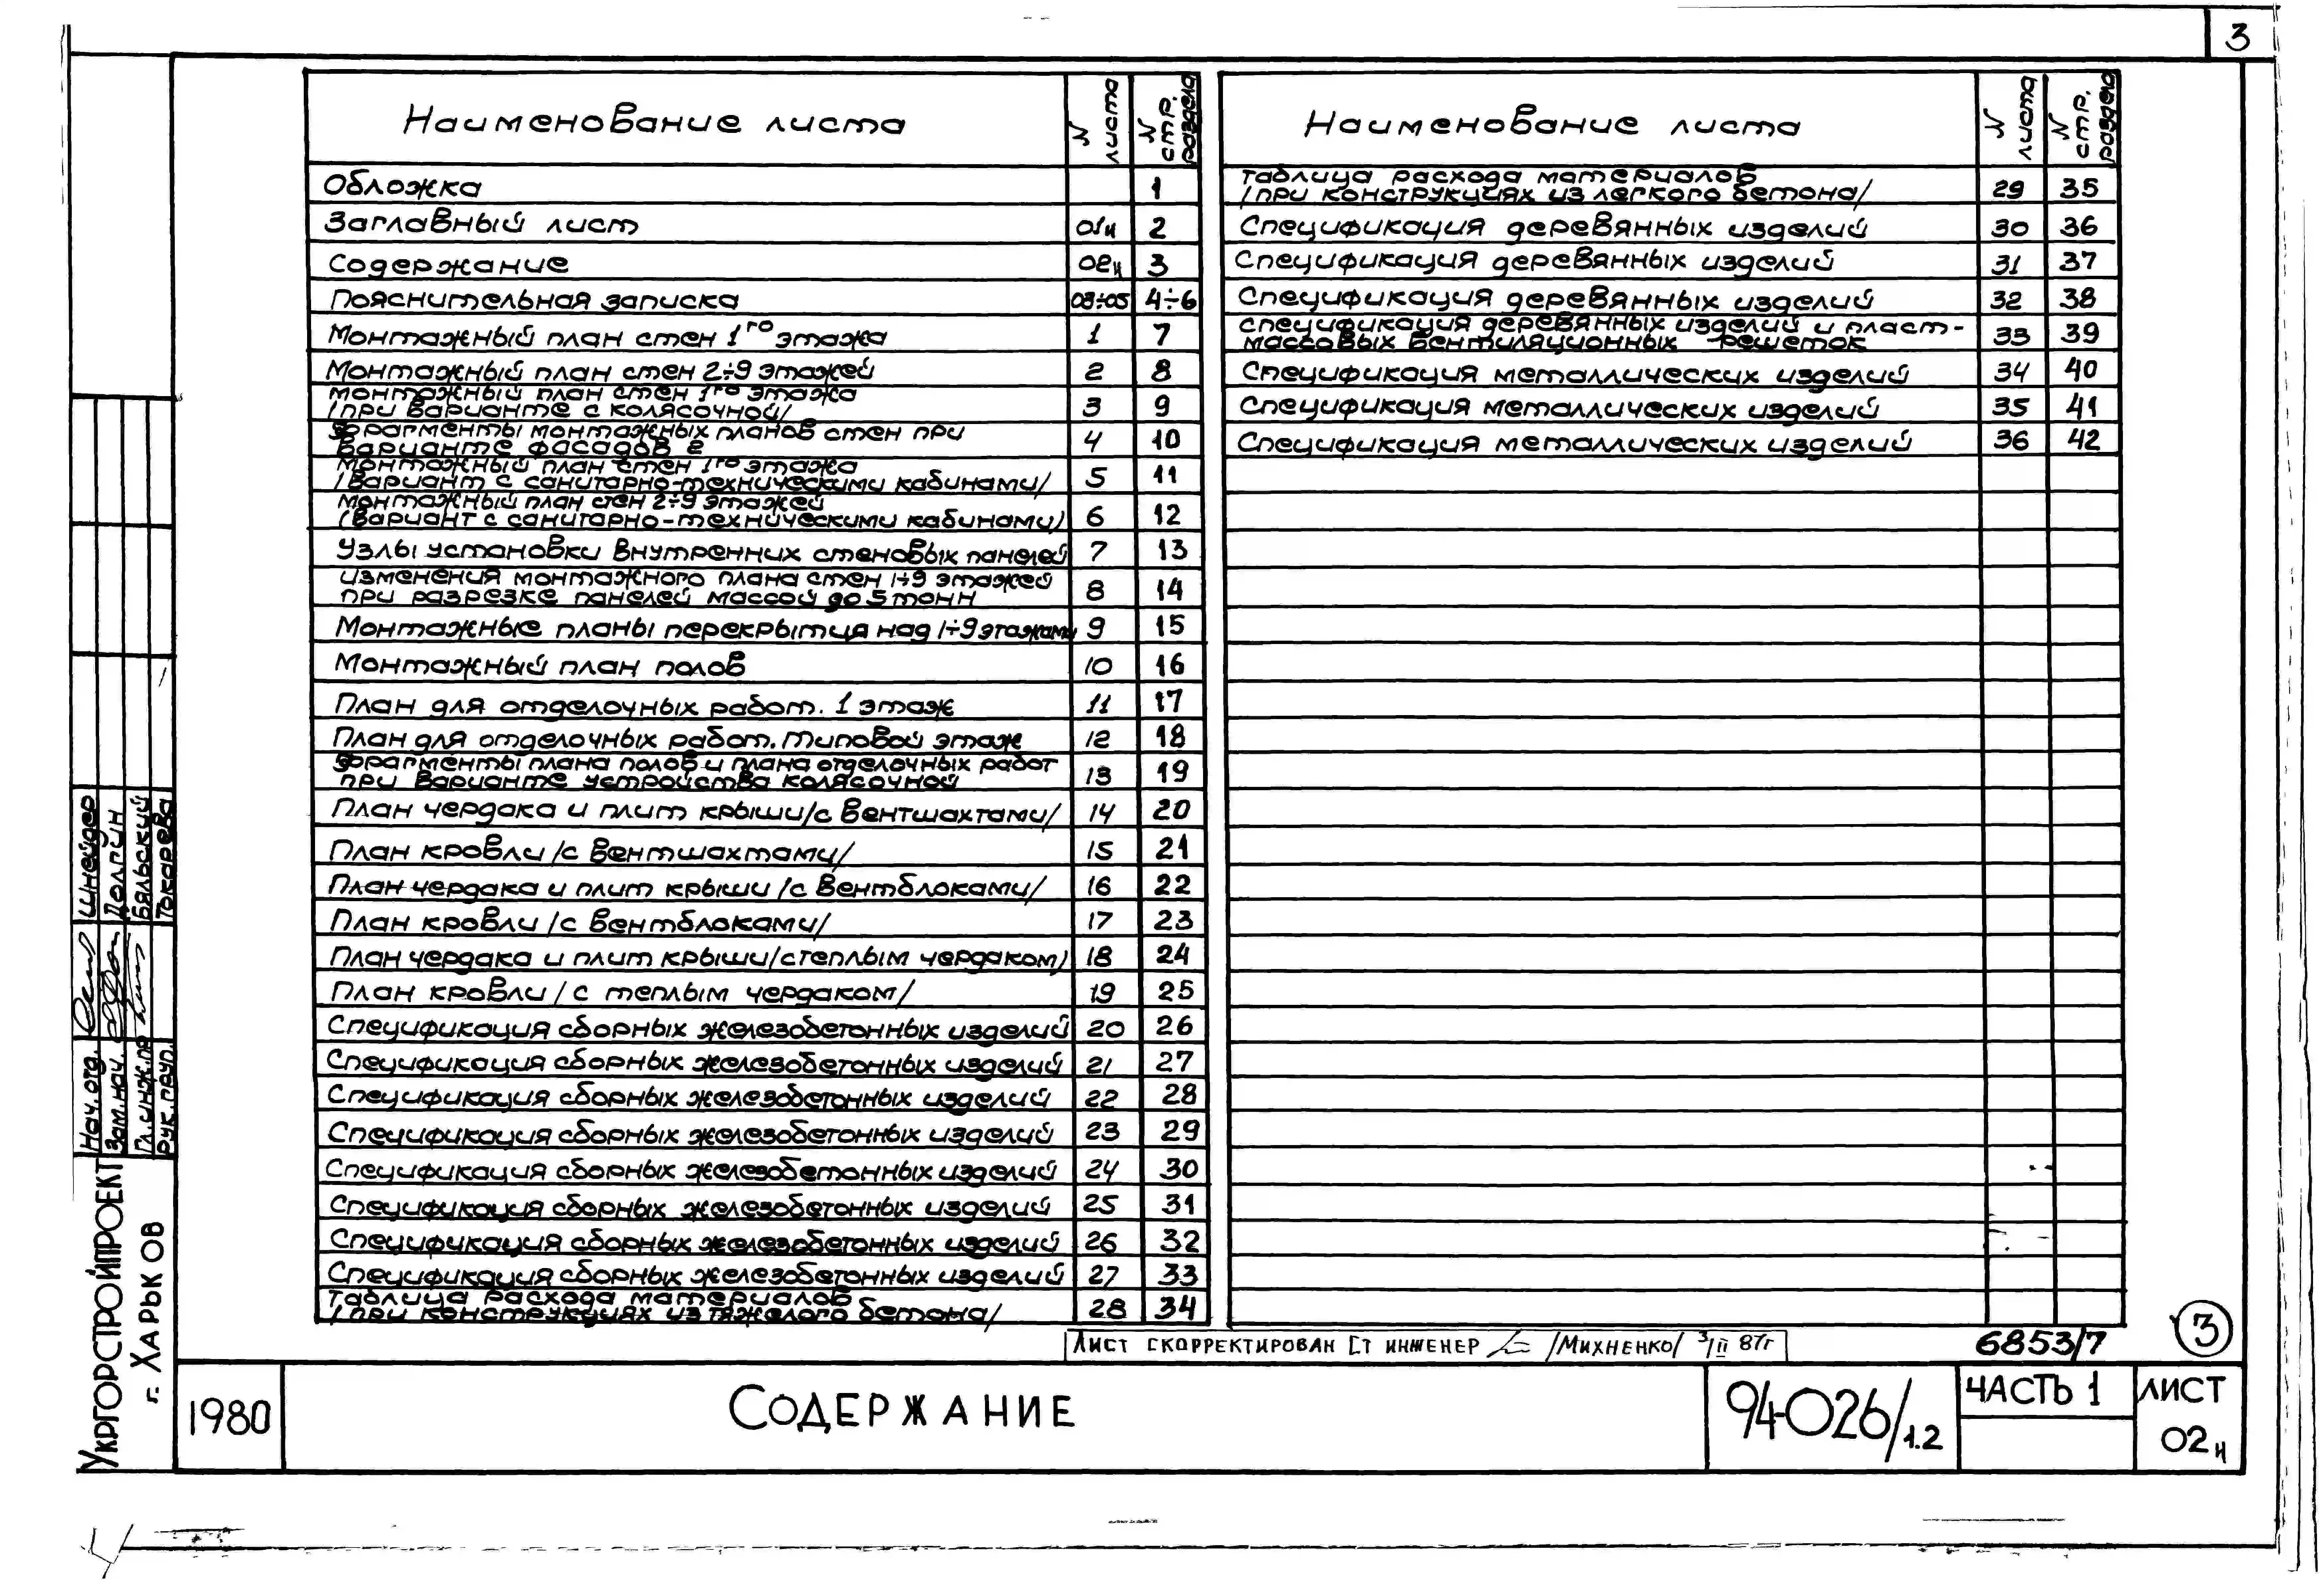 3
Наименование листа
N листа
N стр. раздела
Обложка 1
Заглавный лист 01и 2
Содержание 02и 3
Пояснительная записка 03÷05 4÷6
Монтажный план стен 1го этажа 1 7
Монтажный план стен 2÷9 этажей 2 8
Монтажный план стен 1го этажа
/при варианте с колясочной/ 3 9
Фрагменты монтажных планов стен при
варианте фасадов 2 4 10
Монтажный план стен 1го этажа
/вариант с санитарно-техническими кабинами/ 5 11
Монтажный план стен 2÷9 этажей
/вариант с санитарно-техническими кабинами/ 6 12
Узлы установки внутренних стеновых панелей 7 13
Изменения монтажного плана стен 1÷9 этажей
при разрезке панелей массой до 5 тонн 8 14
Монтажные планы перекрытия над 1÷9 этажами 9 15
Монтажный план полов 10 16
План для отделочных работ. 1 этаж 11 17
План для отделочных работ. Типовой этаж 12 18
Фрагменты плана полов и плана отделочных работ
при варианте устройства колясочной 13 19
План чердака и плит крыши/с вентшахтами/ 14 20
План кровли /с вентшахтами/ 15 21
План чердака и плит крыши /с вентблоками/ 16 22
План кровли /с вентблоками/ 17 23
План чердака и плит крыши/с теплым чердаком/ 18 24
План кровли /с теплым чердаком/ 19 25
Спецификация сборных железобетонных изделий 20 26
Спецификация сборных железобетонных изделий 21 27
Спецификация сборных железобетонных изделий 22 28
Спецификация сборных железобетонных изделий 23 29
Спецификация сборных железобетонных изделий 24 30
Спецификация сборных железобетонных изделий 25 31
Спецификация сборных железобетонных изделий 26 32
Спецификация сборных железобетонных изделий 27 33
Таблица расхода материалов
/при конструкциях из тяжелого бетона/ 28 34
Наименование листа
N листа
N стр. раздела
Таблица расхода материалов
/при конструкциях из легкого бетона/ 29 35
Спецификация деревянных изделий 30 36
Спецификация деревянных изделий 31 37
Спецификация деревянных изделий 32 38
Спецификация деревянных изделий и пласт-
массовых вентиляционных решеток 33 39
Спецификация металлических изделий 34 40
Спецификация металлических изделий 35 41
Спецификация металлических изделий 36 42
Лист скорректирован Ст инженер /Михненко/ 3/II 87г
6853/7
3
Нач. отд. Шнейдер
Зам. нач.
Гл. инж. пр Бяльский
Рук. груп. Токарева
Укргорстройпроект
г. Харьков
1980
Содержание
94-026/1.2
Часть 1
Лист
02и